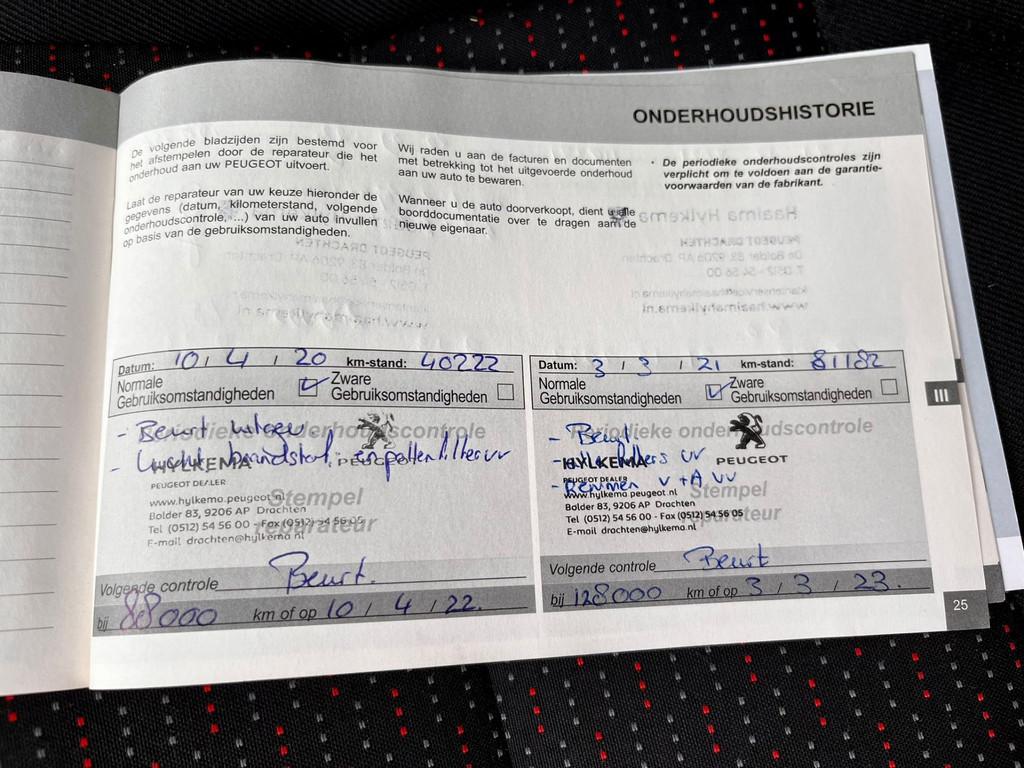 ONDERHOUDSHISTORIE
De volgende bladzijden zijn bestemd voor
het afstempelen door de reparateur die het
onderhoud aan uw PEUGEOT uitvoert.
Laat de reparateur van uw keuze hieronder de
gegevens (datum, kilometerstand, volgende
onderhoudscontrole, ...) van uw auto invullen
op basis van de gebruiksomstandigheden.
Wij raden u aan de facturen en documenten
met betrekking tot het uitgevoerde onderhoud
aan uw auto te bewaren.
Wanneer u de auto doorverkoopt, dient u alle
boorddocumentatie over te dragen aan de
nieuwe eigenaar.
• De periodieke onderhoudscontroles zijn
verplicht om te voldoen aan de garantie-
voorwaarden van de fabrikant.
Datum: 10 / 4 / 20 km-stand: 40222
Normale
Gebruiksomstandigheden
Zware
Gebruiksomstandigheden
Periodieke onderhoudscontrole
- Beurt
- Lucht brandstof en pollenfilter vv
HYLKEMA PEUGEOT
PEUGEOT DEALER
www.hylkema.peugeot.nl
Stempel
Bolder 83, 9206 AP Drachten
Tel (0512) 54 56 00 - Fax (0512) 54 56 05
reparateur
E-mail drachten@hylkema.nl
Volgende controle Beurt.
bij 88000 km of op 10 / 4 / 22.
Datum: 3 / 3 / 21 km-stand: 81182
Normale
Gebruiksomstandigheden
Zware
Gebruiksomstandigheden
Periodieke onderhoudscontrole
- Beurt.
- alle filters vv
HYLKEMA PEUGEOT
PEUGEOT DEALER
- Remmen v + A vv
www.hylkema.peugeot.nl
Stempel
Bolder 83, 9206 AP Drachten
Tel (0512) 54 56 00 - Fax (0512) 54 56 05
reparateur
E-mail drachten@hylkema.nl
Volgende controle Beurt
bij 128000 km of op 3 / 3 / 23.
III
25